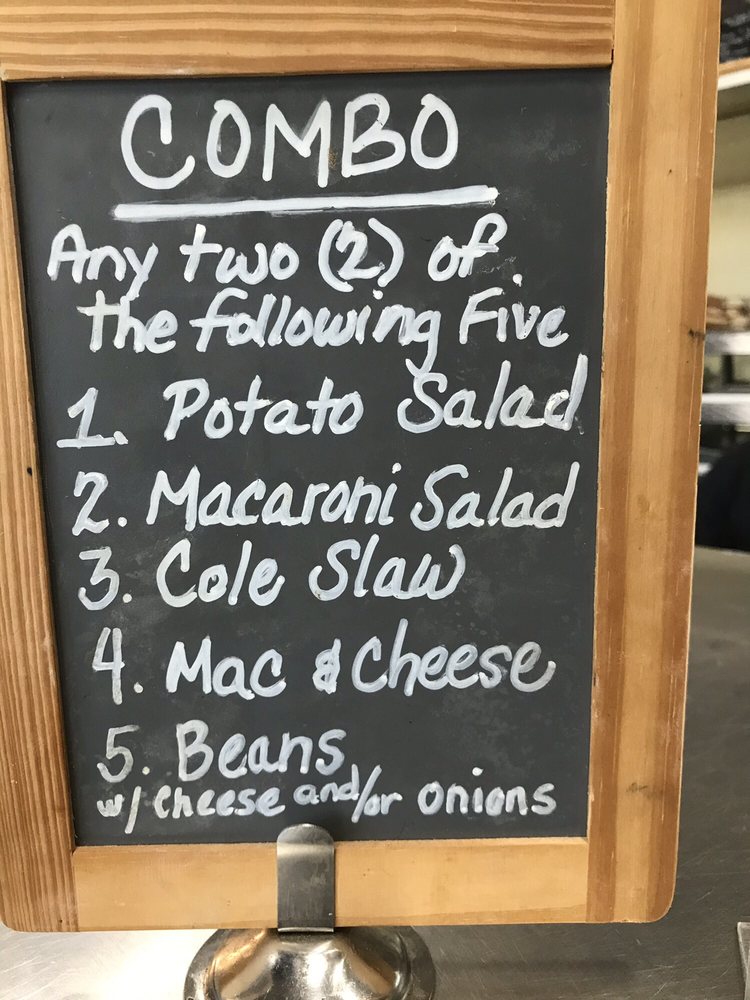 COMBO
Any two (2) of
the following Five
1. Potato Salad
2. Macaroni Salad
3. Cole Slaw
4. Mac & Cheese
5. Beans
w/ cheese and/or onions